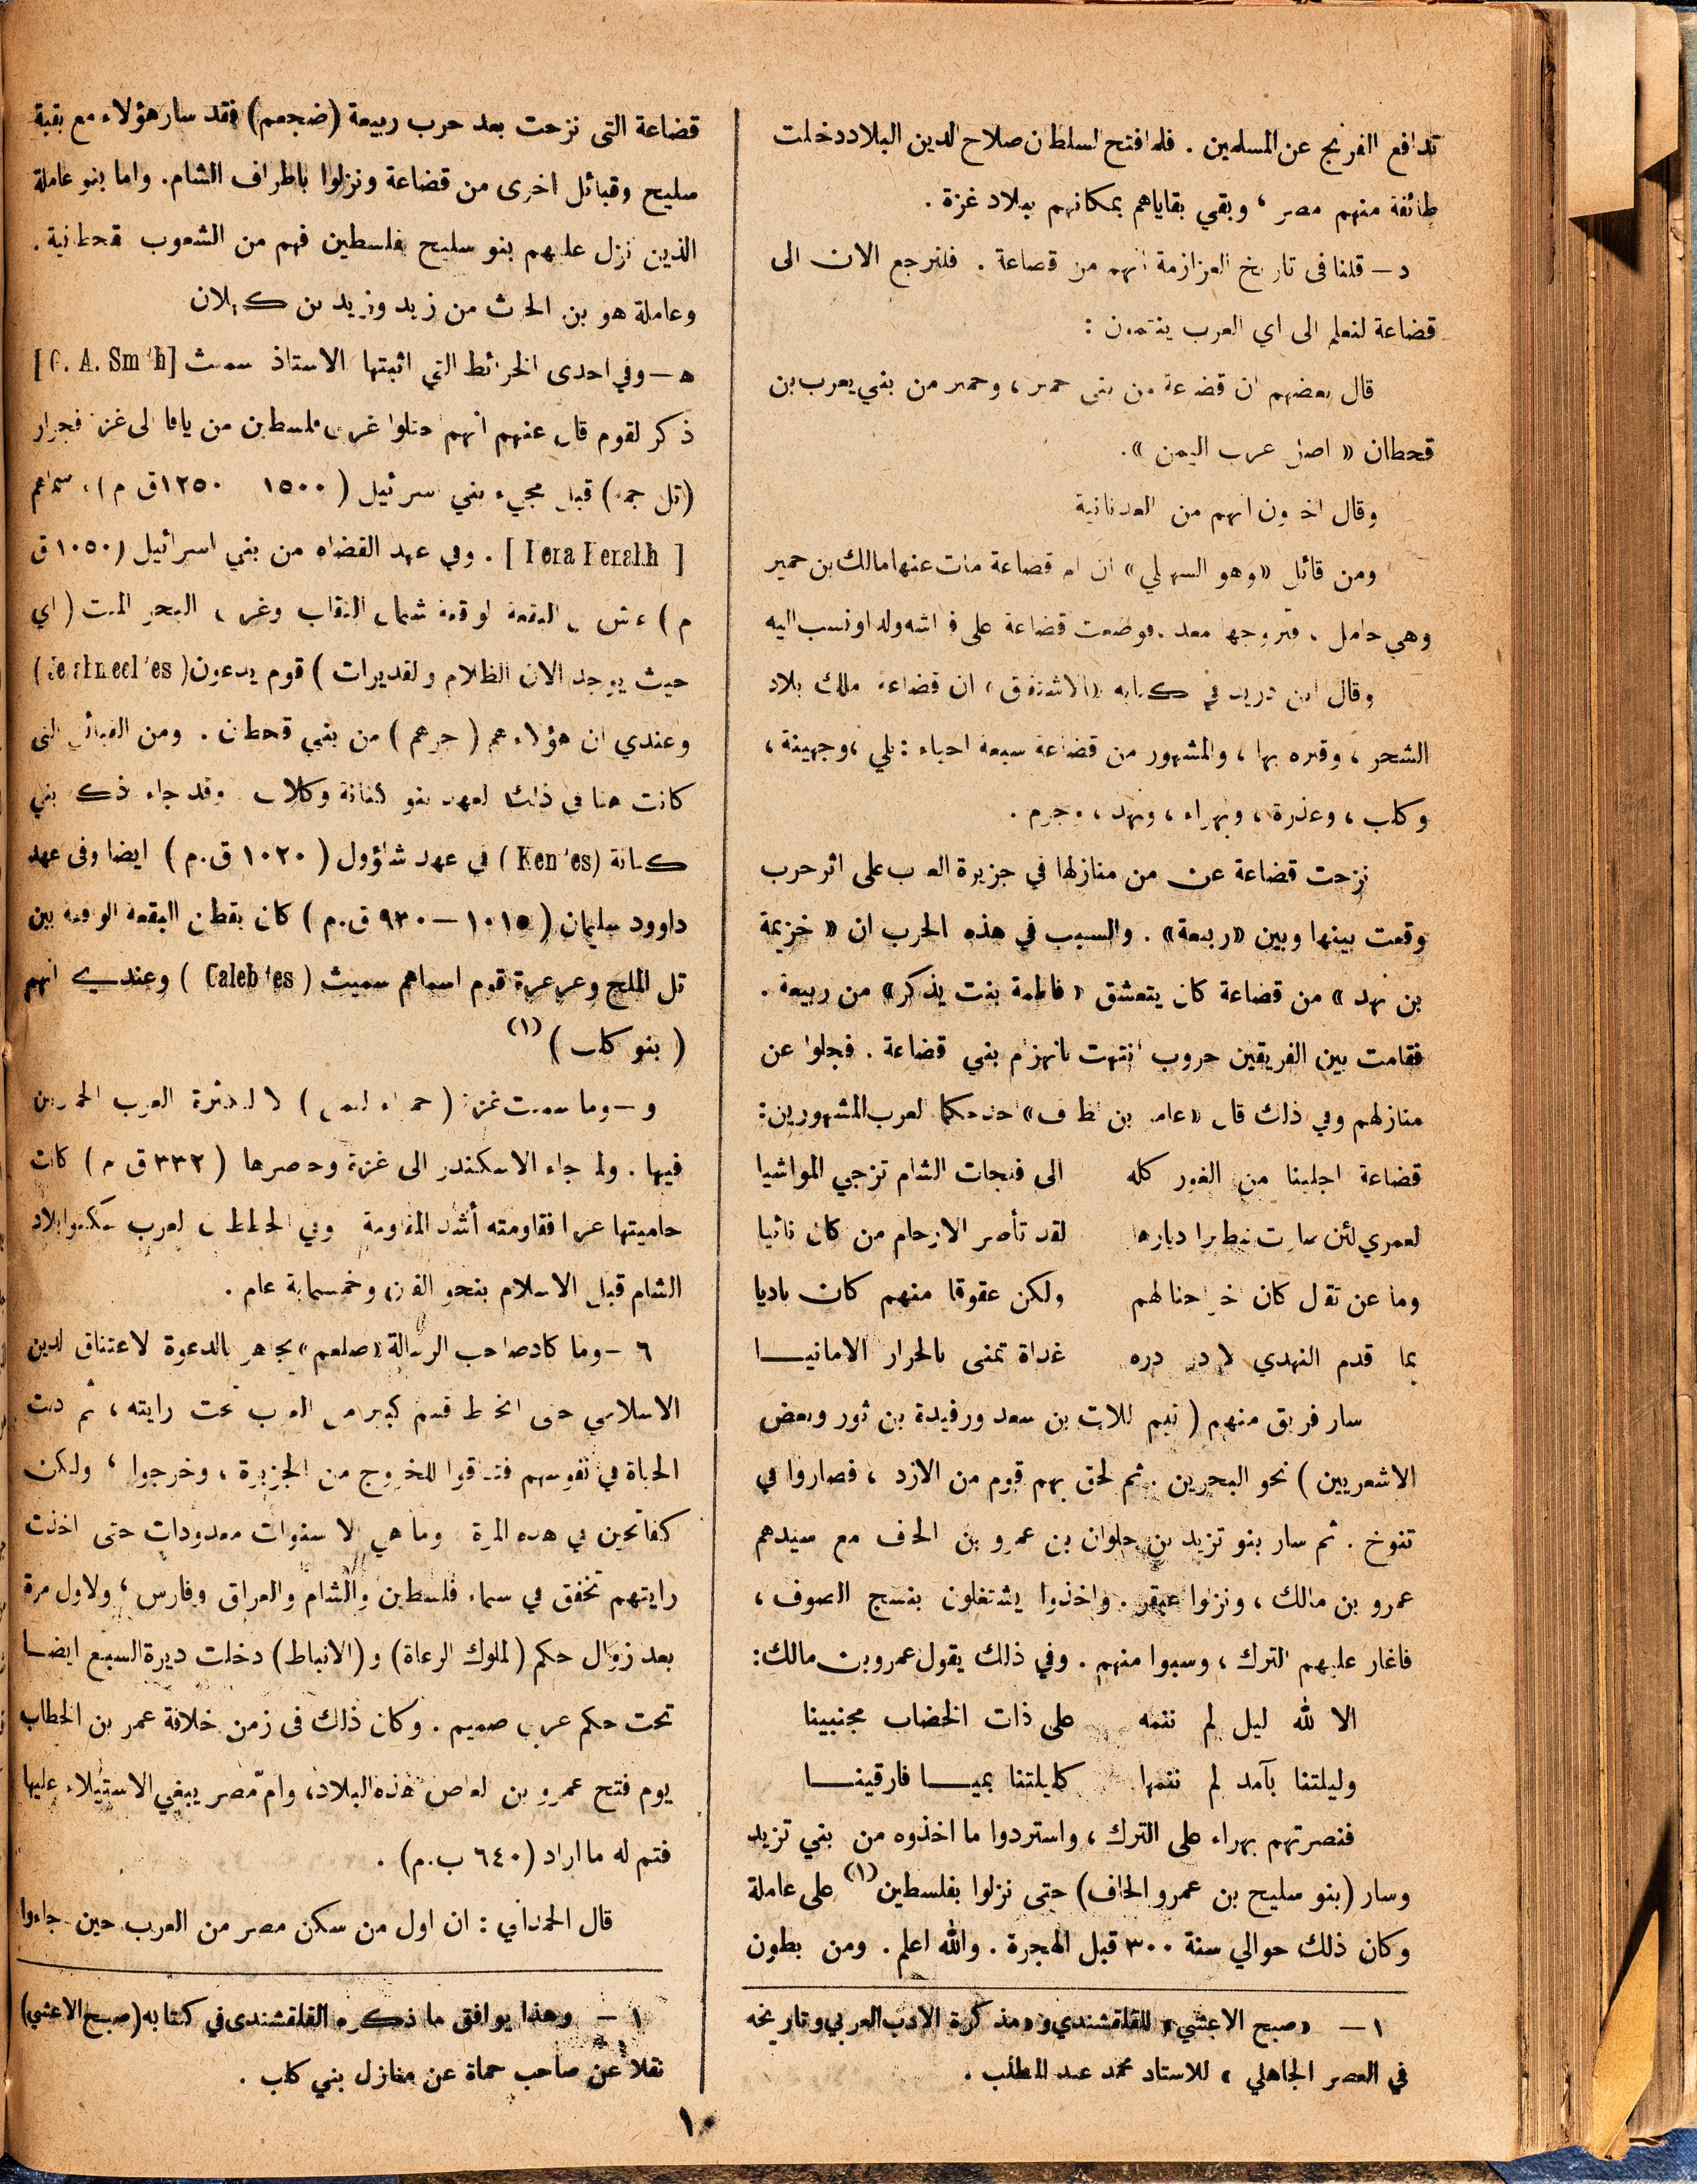 تدافع الفرنج عن المسلمين . فلما افتتح السلطان صلاح الدين البلاد دخلت
طائفة منهم مصر ، وبقي بقاياهم بمكانهم ببلاد غزة .
د – قلنا فى تاريخ العزازمة انهم من قضاعة . فلنرجع الان الى
قضاعة لنعلم الى اي العرب ينتمون :
قال بعضهم ان قضاعة من بنى حمير ، وحمير من بني يعرب بن
قحطان « اصل عرب اليمن » .
وقال اخرون انهم من العدنانية
ومن قائل « وهو السهيلي » ان ام قضاعة مات عنها مالك بن حمير
وهي حامل ، فتزوجها معد . فوضعت قضاعة على فراشه ولدا ونسب اليه
وقال ابن دريد في كتابه «الاشتقاق» ان قضاعة ملك بلاد
الشحر ، وقبره بها ، والمشهور من قضاعة سبعة احياء : بلي ، وجهينة ،
وكلب ، وعذرة ، وبهراء ، ونهد ، وجرم .
نزحت قضاعة عن من منازلها في جزيرة العرب على اثر حرب
وقعت بينها وبين «ربيعة» . والسبب في هذه الحرب ان « خزيمة
بن نهد » من قضاعة كان يتعشق « فاطمة بنت يذكر » من ربيعة .
فقامت بين الفريقين حروب انتهت بانهزام بني قضاعة . فجلوا عن
منازلهم وفي ذلك قال «عامر بن ظرف» احد حكما العرب المشهورين :
قضاعة اجلينا من الغور كله الى فلجات الشام تزجي المواشيا
لعمري لئن سارت شطيرا ديارها لقد تأصر الارحام من كان نائيا
وما عن تقال كان خراجنا لهم ولكن عقوقا منهم كان باديا
بما قدم النهدي لا در دره غداة تمنى بالحرار الامانيا
سار فريق منهم ( تيم اللات بن سعد ورفيدة بن ثور وبعض
الاشعريين ) نحو البحرين . ثم لحق بهم قوم من الازد ، فصاروا في
تنوخ . ثم سار بنو تزيد بن حلوان بن عمرو بن الحاف مع سيدهم
عمرو بن مالك ، ونزلوا عبقر . واخذوا يشتغلون بنسج الصوف ،
فاغار عليهم الترك ، وسبوا منهم . وفي ذلك يقول عمرو بن مالك :
الا لله ليل لم ننمه على ذات الخضاب مجنبينا
وليلتنا بآمد لم ننمها كليلتنا بميا فارقينا
فنصرتهم بهراء على الترك ، واستردوا ما اخذوه من بني تزيد
وسار (بنو سليح بن عمرو الحاف) حتى نزلوا بفلسطين (١) على عاملة
وكان ذلك حوالي سنة ٣٠٠ قبل الهجرة . والله اعلم . ومن بطون
١ – «صبح الاعشي» للقلقشندي و«مذكرة الادب العربي وتاريخه
في العصر الجاهلي » للاستاد محمد عبد المطلب .
قضاعة التى نزحت بعد حرب ربيعة (ضجعم) فقد سار هؤلاء مع بقية
سليح وقبائل اخرى من قضاعة ونزلوا باطراف الشام . واما بنو عاملة
الذين نزل عليهم بنو سليح بفلسطين فهم من الشعوب قحطانية .
وعاملة هو بن الحرث من زيد وزيد بن كهلان
ه – وفي احدى الخرائط التي اثبتها الاستاذ سمث [G. A. Smith]
ذكر لقوم قال عنهم انهم احتلوا غربي فلسطين من يافا الى غزة فجرار
(تل جمه) قبل مجيء بني اسرائيل ( ١٥٠٠ ١٢٥٠ ق م ) ، سماهم
. وفي عهد القضاه من بني اسرائيل ( ١٠٥٠ ق
م ) عاش في البقعة الواقعة شمال النقاب وغربي البحر الميت ( اي
حيث يوجد الان الظلام والقديرات ) قوم يدعون
وعندي ان هؤلاء هم ( جرهم ) من بني قحطان . ومن القبائل التى
كانت هنا في ذلك العهد بنو كنانة وكلاب وقد جاء ذكر بني
كنانة (Kenites) في عهد شاؤول ( ١٠٢٠ ق.م ) ايضا وفى عهد
داوود سليمان ( ١٠١٥ – ٩٣٠ ق.م ) كان يقطن البقعة الواقعة بين
تل الملح وعرعرة قوم اسماهم سميث ( Calebites ) وعندي انهم
( بنو كلب ) (١)
و – وما سميت غزة ( حمراء اليمن ) الا لكثرة العرب الحمريين
فيها . ولما جاء الاسكندر الى غزة وحصرها ( ٣٣٢ ق م ) كانت
حاميتها عربا فقاومته أشد المقاومة وفي الخطط ان العرب سكنوا بلاد
الشام قبل الاسلام بنحو الفين وخمسماية عام .
٦ – وما كاد صاحب الرسالة «صلعم» يجاهر بالدعوة لاعتناق الدين
الاسلامي حتى انخرط قسم كبير من العرب تحت رايته ، ثم دبت
الحياة في نفوسهم فتاقوا للخروج من الجزيرة ، وخرجوا ، ولكن
كفاتحين في هذه المرة وما هي الا سنوات معدودات حتى اخذت
رايتهم تخفق في سماء فلسطين والشام والعراق وفارس ، ولاول مرة
بعد زوال حكم (الملوك الرعاة) و (الانباط) دخلت ديرة السبع ايضا
تحت حكم عربي صميم . وكان ذلك فى زمن خلافة عمر بن الخطاب
يوم فتح عمرو بن العاص هذه البلاد ، وامّ مصر يبغي الاستيلاء عليها
فتم له ما اراد (٦٤٠ ب.م) .
قال الحمداني : ان اول من سكن مصر من العرب حين جاءوا
١ – وهذا يوافق ما ذكره القلقشندى في كتابه (صبح الاعشي)
نقلا عن صاحب حماة عن منازل بني كلب .
١٠